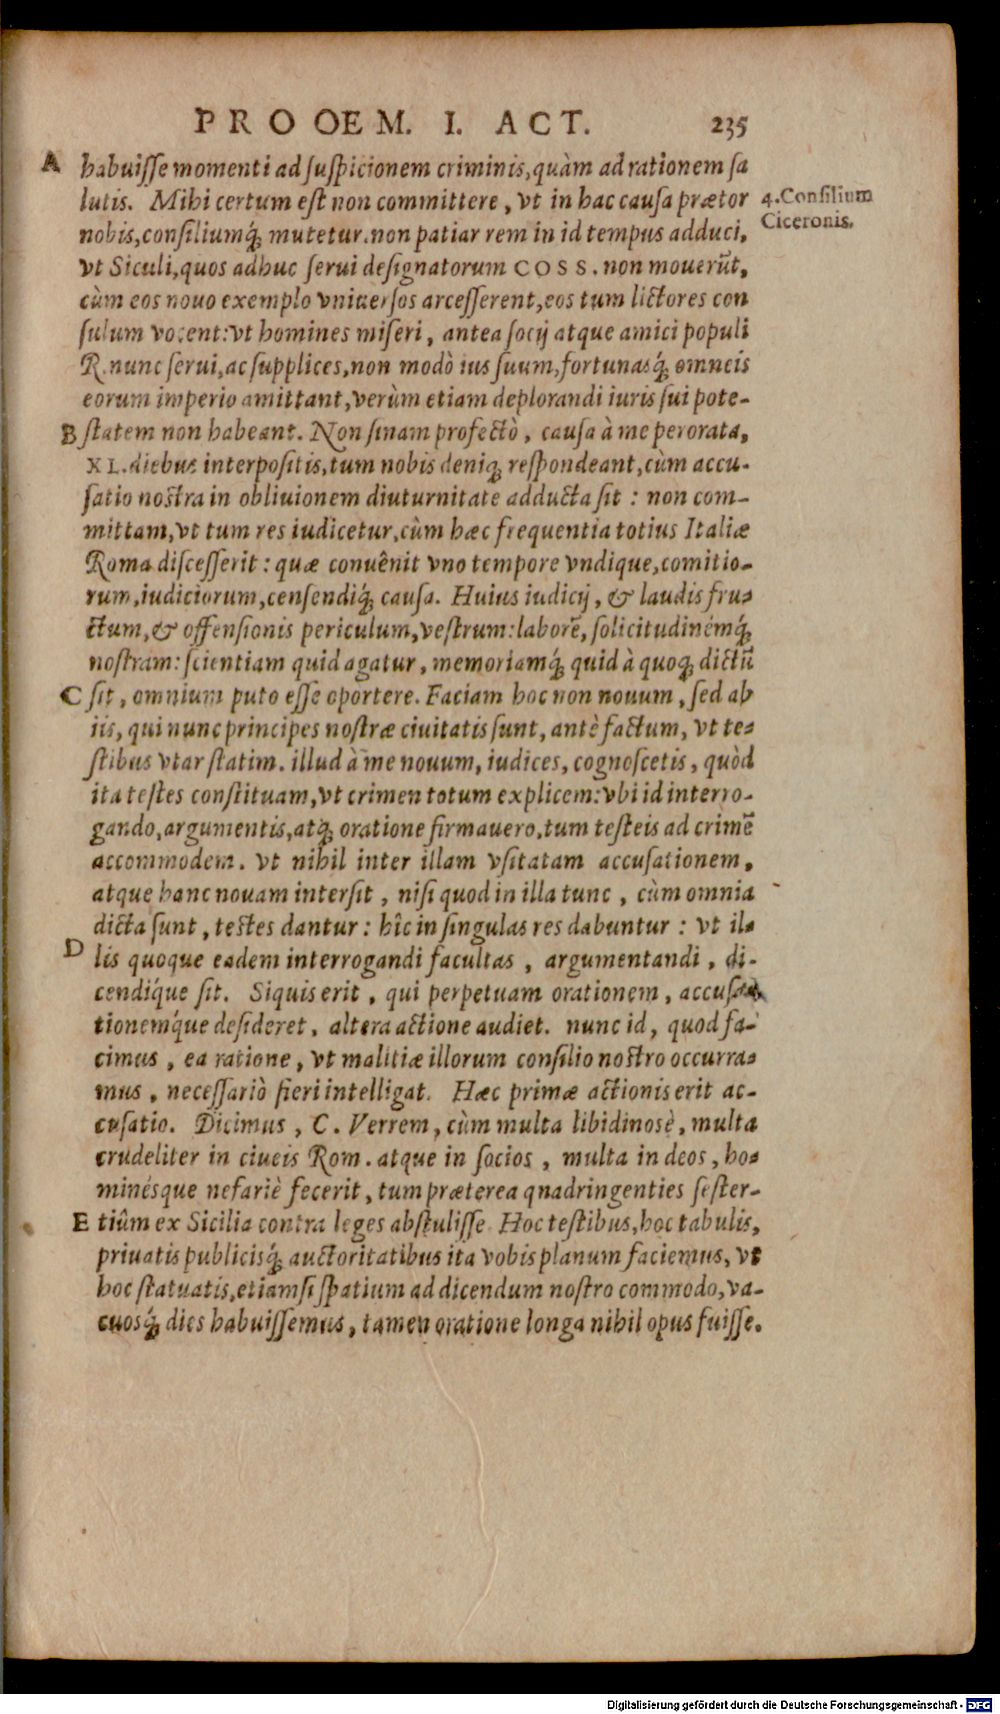 PROOEM. I. ACT. 235
A habuiſſe momenti ad ſuſpicionem criminis, quàm ad rationem ſa
lutis. Mihi certum eſt non committere, vt in hac cauſa prætor
4. Conſilium
Ciceronis.
nobis, conſiliumq́; mutetur. non patiar rem in id tempus adduci,
vt Siculi, quos adhuc ſerui deſignatorum COSS. non mouerūt,
cùm eos nouo exemplo vniuerſos arceſſerent, eos tum lictores con
ſulum vocent: vt homines miſeri, antea ſocij atque amici populi
R. nunc ſerui, ac ſupplices, non modò ius ſuum, fortunasq́; omneis
eorum imperio amittant, verùm etiam deplorandi iuris ſui pote-
B ſtatem non habeant. Non ſinam profectò, cauſa à me perorata,
XL. diebus interpoſitis, tum nobis deniq; reſpondeant, cùm accu-
ſatio noſtra in obliuionem diuturnitate adducta ſit: non com-
mittam, vt tum res iudicetur, cùm hæc frequentia totius Italiæ
Roma diſceſſerit: quæ convênit vno tempore vndique, comitio-
rum, iudiciorum, cenſendiq́; cauſa. Huius iudicij, & laudis fru-
ctum, & offenſionis periculum, veſtrum: laborē, ſolicitudinémq́;
noſtram: ſcientiam quid agatur, memoriamq́; quid à quoq; dictū
C ſit, omnium puto eſſe oportere. Faciam hoc non nouum, ſed ab
iis, qui nunc principes noſtræ ciuitatis ſunt, antè factum, vt te-
ſtibus vtar ſtatim. illud à me nouum, iudices, cognoſcetis, quòd
ita teſtes conſtituam, vt crimen totum explicem: vbi id interro-
gando, argumentis, atq; oratione firmauero, tum teſteis ad crimē
accommodem. vt nihil inter illam vſitatam accuſationem,
atque hanc nouam interſit, niſi quod in illa tunc, cùm omnia
dicta ſunt, teſtes dantur: hîc in ſingulas res dabuntur: vt il-
D lis quoque eadem interrogandi facultas, argumentandi, di-
cendíque ſit. Siquis erit, qui perpetuam orationem, accuſa-
tionemq́ue deſideret, altera actione audiet. nunc id, quod fa-
cimus, ea ratione, vt malitiæ illorum conſilio noſtro occurra-
mus, neceſſariò fieri intelligat. Hæc primæ actionis erit ac-
cuſatio. Dicimus, C. Verrem, cùm multa libidinosè, multa
crudeliter in ciueis Rom. atque in ſocios, multa in deos, ho-
minésque nefariè fecerit, tum præterea quadringenties ſeſter-
E tiûm ex Sicilia contra leges abſtuliſſe. Hoc teſtibus, hoc tabulis,
priuatis publicisq́; auctoritatibus ita vobis planum faciemus, vt
hoc ſtatuatis, etiamſi ſpatium ad dicendum noſtro commodo, va-
cuosq́; dies habuiſſemus, tamen oratione longa nihil opus fuiſſe.
Digitalisierung gefördert durch die Deutsche Forschungsgemeinschaft - DFG